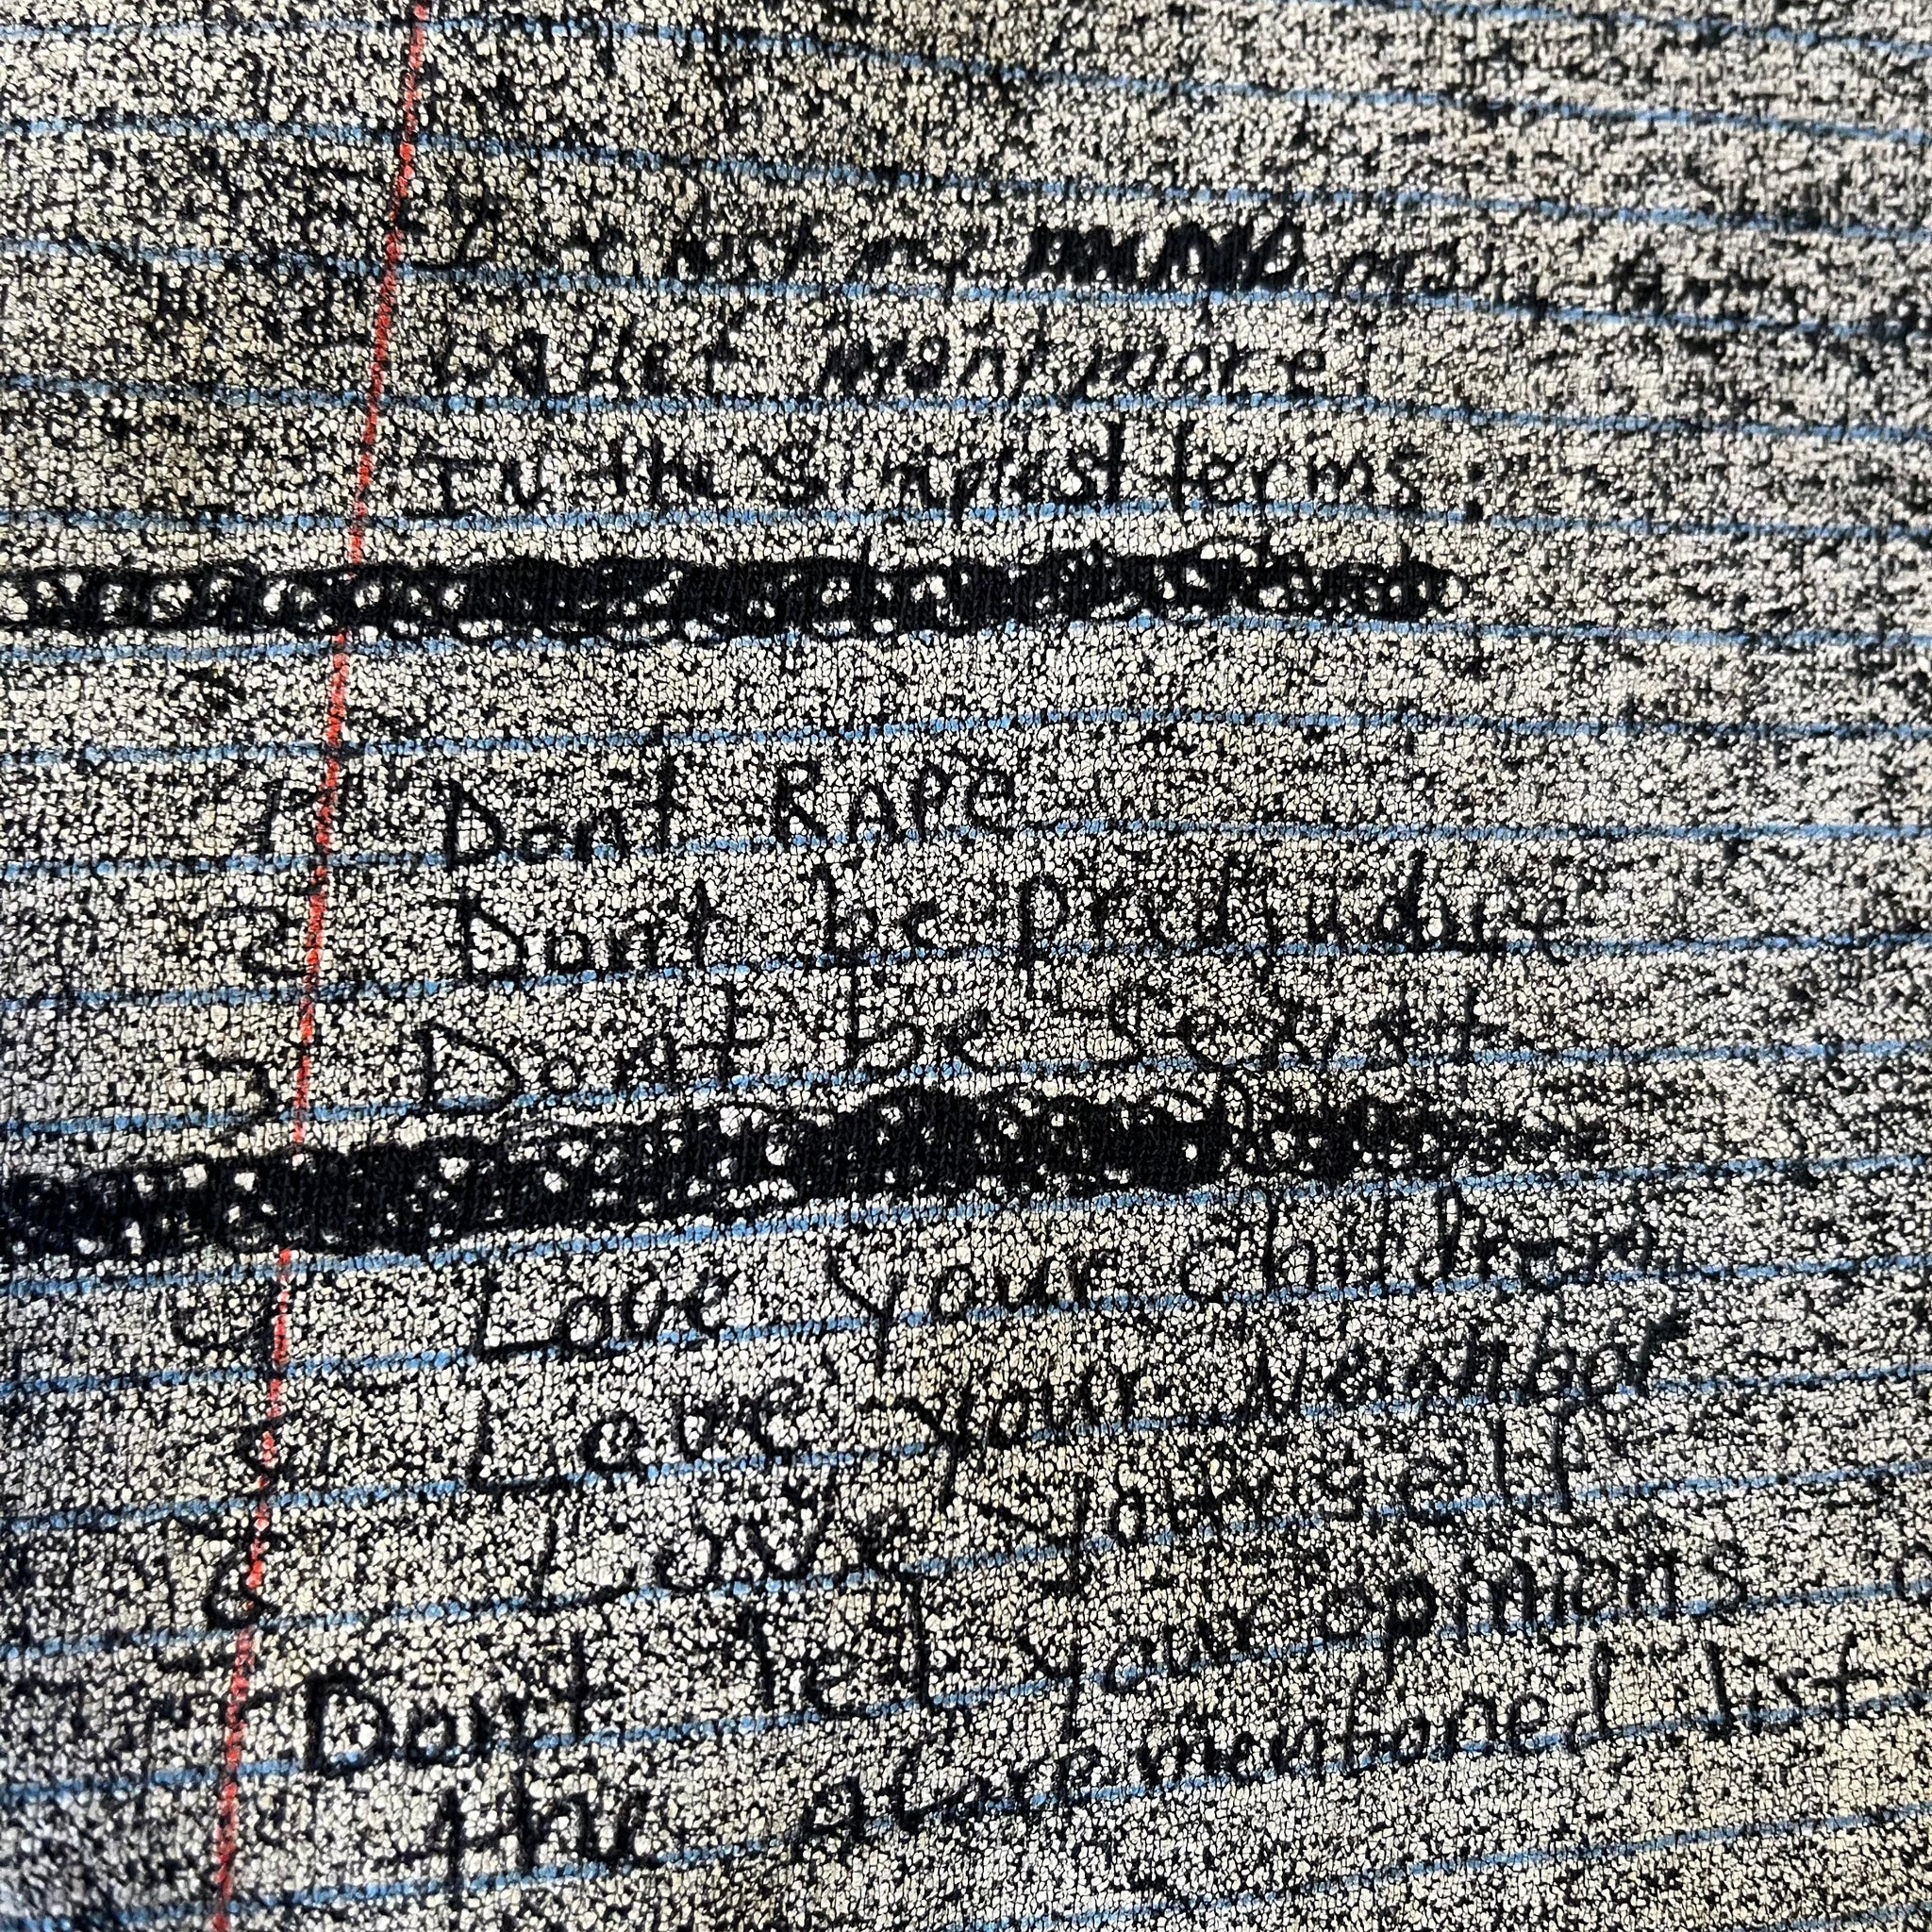 just my
want more
In the simplest terms:
1 Don't RAPE
2 Dont be predjudice
3 Dont be sexist
4 Love your children
5 Love your Neighbor
6 Love yourself
Dont let your opinions
the aforementioned list